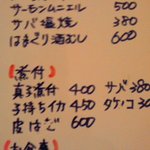 サーモンムニエル 500
サバ塩焼 380
はまぐり酒むし 600
(煮付)
真子煮付 400 サバ 380
子持ちイカ 450 タケノコ 30
皮はぎ 600
お食事